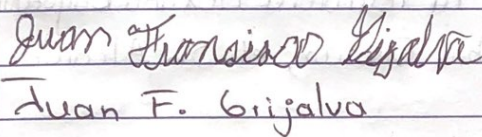 Juan Francisco Grijalva
Juan F. Grijalva